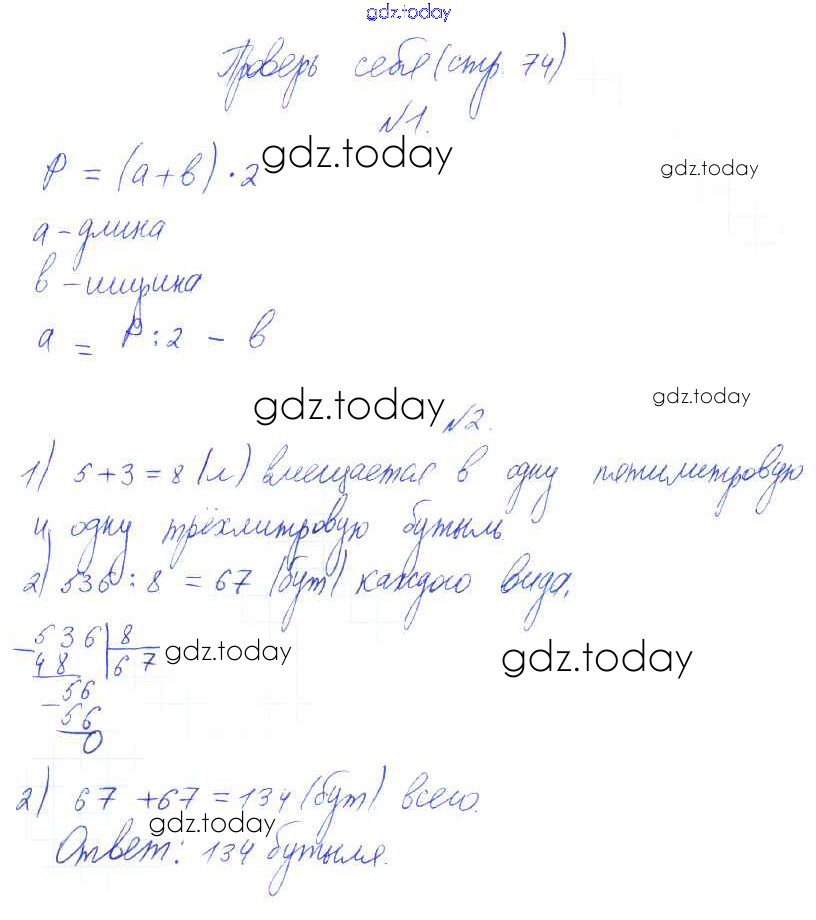 gdz.today
Проверь себя (стр. 74)
№1.
gdz.today
gdz.today
P = (a + в) · 2
а - длина
в - ширина
a = P : 2 - в
gdz.today
gdz.today
№2.
1) 5 + 3 = 8 (л) вмещается в одну пятилитровую
и одну трёхлитровую бутыль
2) 536 : 8 = 67 (бут) каждого вида.
536 | 8
- 48 | 67
gdz.today
gdz.today
56
- 56
0
2) 67 + 67 = 134 (бут) всего.
gdz.today
Ответ: 134 бутыля.